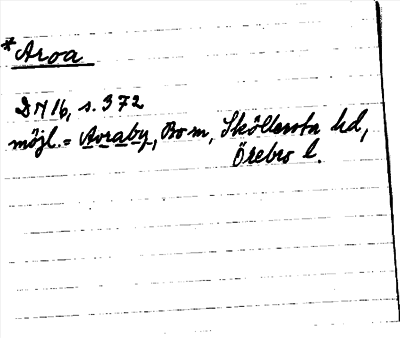 *Aroa
DN 16, s. 372
möjl. = Avraby, Bo m, Sköllersta hd,
Örebro l.